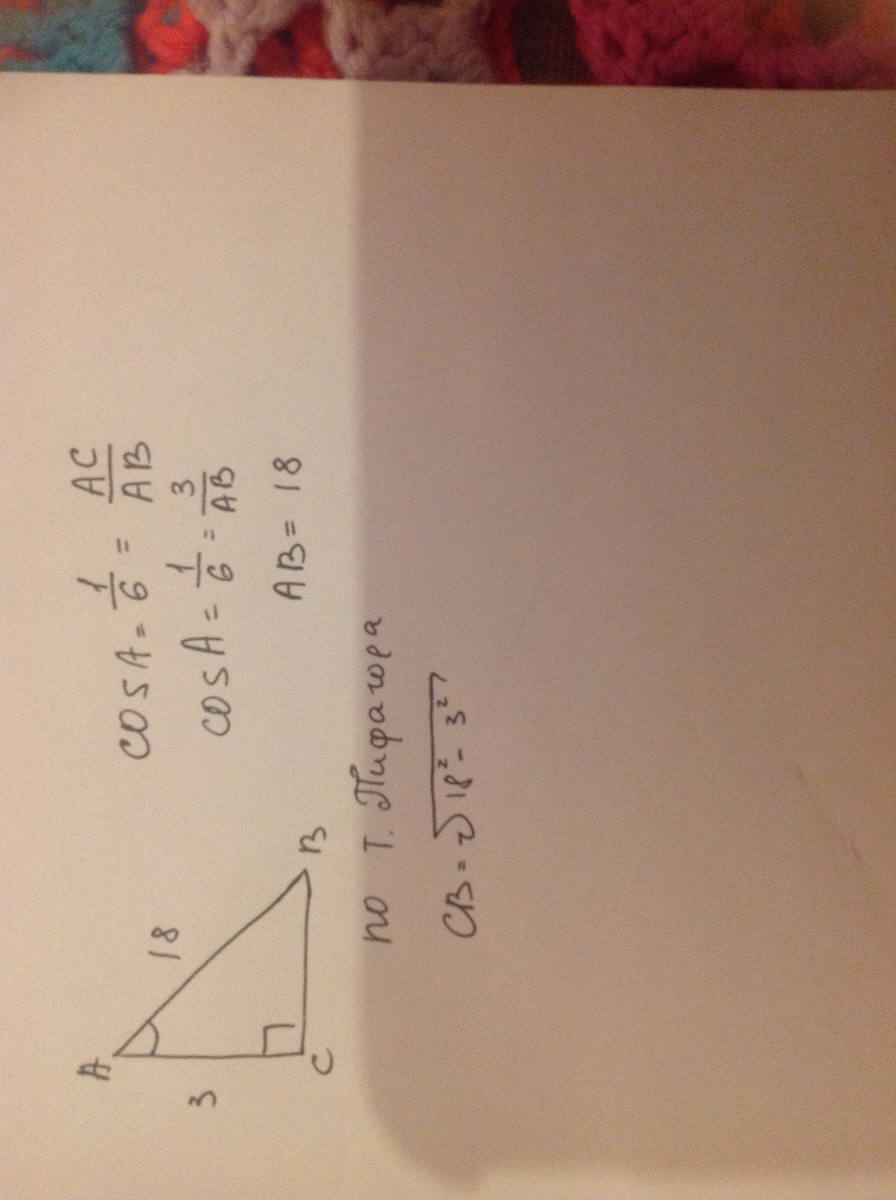 A
3
18
C
B
cos A = 1/6 = AC/AB
cos A = 1/6 = 3/AB
AB = 18
по т. Пифагора
CB = √18² - 3²